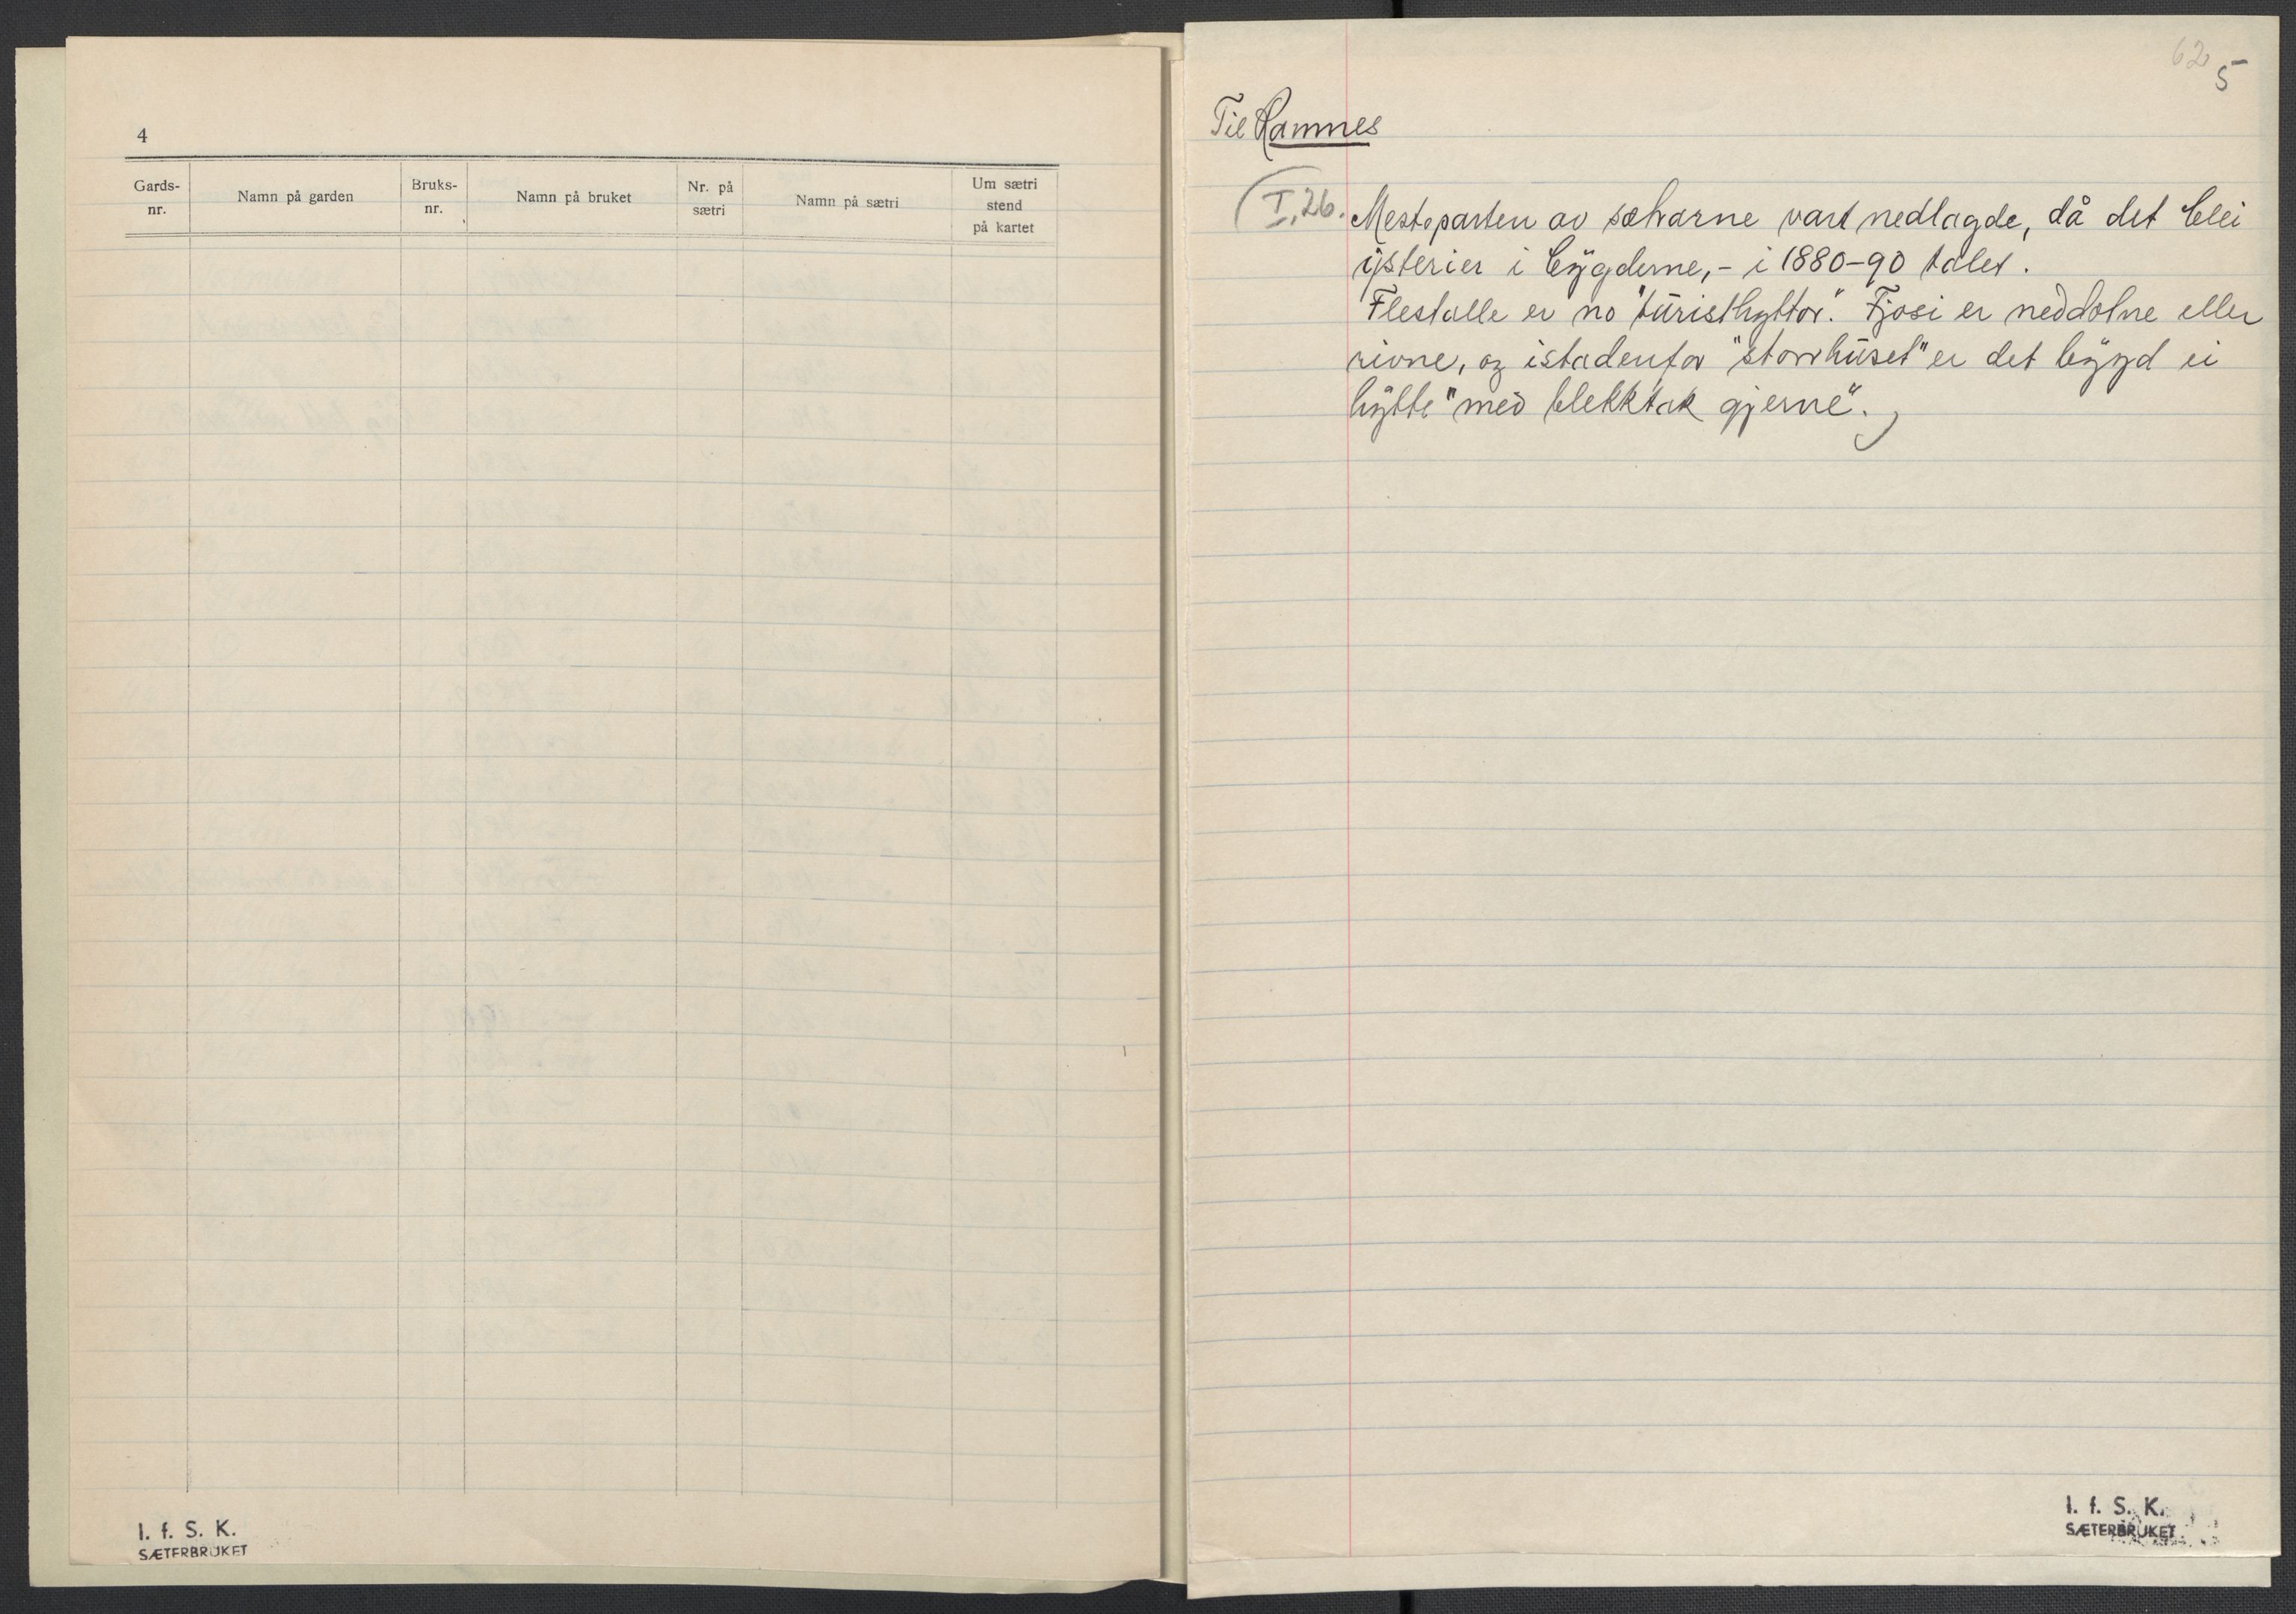 4
Gards-
nr.
Namn på garden
Bruks-
nr.
Namn på bruket
Nr. på
sætri
Namn på sætri
Um sætri
stend
på kartet
I. f. S. K.
SÆTERBRUKET
62
5
Til Ramnes
(I,26. Mesteparten av sætrarne vart nedlagde, då det blei
ysterier i bygderne,- i 1880-90 talet.
Flestalle er no "turisthyttor". Fjosi er neddotne eller
rivne, og istadenfor "storrhuset" er det bygd ei
hytte "med blekktak gjerne".)
I. f. S. K.
SÆTERBRUKET